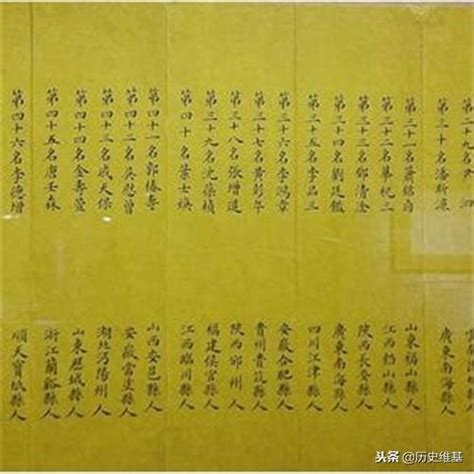 第三十名潘斯濂 廣東南海縣人
第三十一名蕭銘卣 山東福山縣人
第三十二名華祝三 江西鉛山縣人
第三十三名鄧清淦 陝西長安縣人
第三十四名劉廷鑑 廣東南海縣人
第三十五名李品三 四川江津縣人
第三十六名李鴻章 安徽合肥縣人
第三十七名黃彭年 貴州貴筑縣人
第三十八名張增道 陝西邠州人
第三十九名沈葆楨 福建侯官縣人
第四十名葉士煥 江西臨川縣人
第四十一名郭椿壽 山西安邑縣人
第四十二名吳慰曾 安徽當塗縣人
第四十三名戚天保 湖北沔陽州人
第四十四名金壽萱 山東歷城縣人
第四十五名唐壬森 浙江蘭谿縣人
第四十六名李德增 順天寶坻縣人
头条 @历史维基